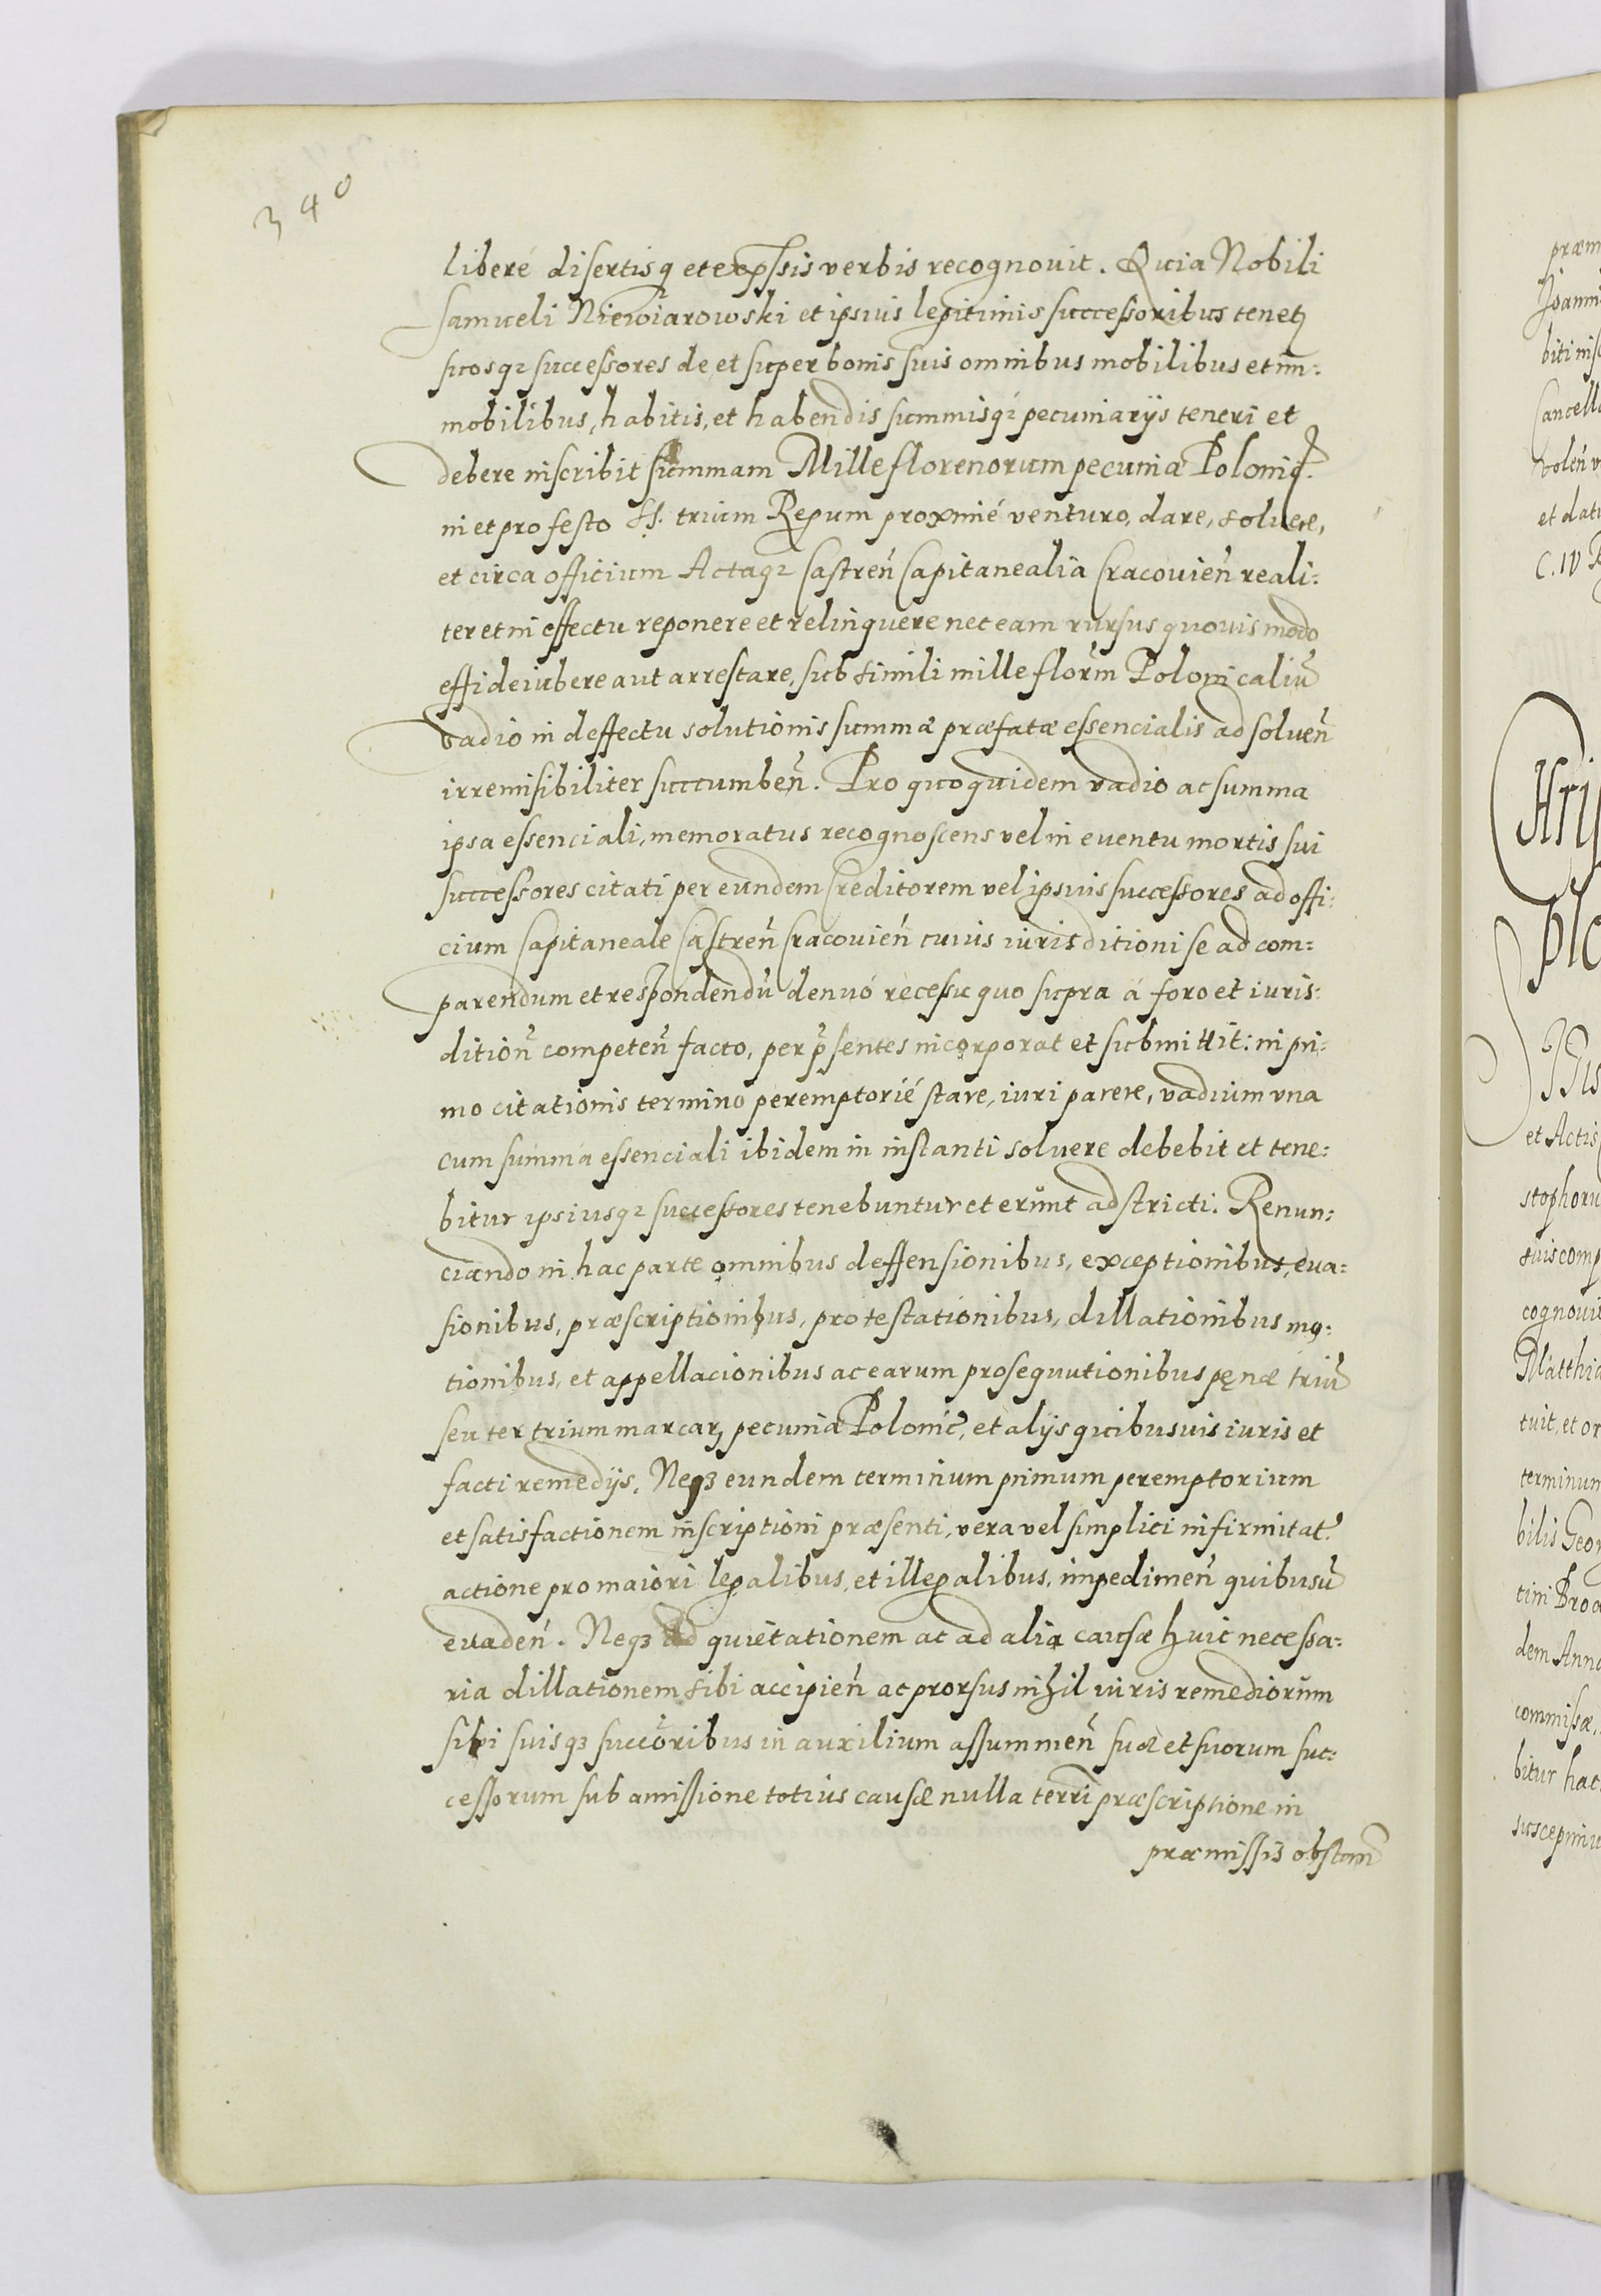 340
liberé disertisq et expssis verbis recognouit. Quia Nobili
Samueli Niewiarowski et ipsius legitimis successoribus tenetz
suosq3 successores de et super bonis suis omnibus mobilibus et im:
mobilibus, habitis, et habendis summisq3 pecuniarijs teneri et
debere inscribit summam Mille florenorum pecuniæ Poloniq.
in et pro festo SS. trium Regum proximé venturo, dare, soluere,
et circa officium Actaq3 Castren̄ Capitanealia Cracouien̄ reali:
ter et in effectu reponere et relinquere nec eam rursus quouis modo
effideiubere aut arrestare, sub simili mille florm̄ Polonicaliū
vadio in deffectu solutionis summæ præfatæ essencialis ad soluen̄
irremisibiliter succumben̄. Pro quo quidem vadio ac summa
ipsa essenciali, memoratus recognoscens vel in euentu mortis sui
successores citati per eundem Creditorem vel ipsius successores ad offi:
cium Capitaneale Castren̄ Cracouien̄ cuius iurisditioni se ad com:
parendum et respondendū denuó recessu quo supra á foro et iuris:
dition̄ competen̄ facto, per p̄sentes incorporat et submittit: in pri:
mo citationis termino peremptorié stare, iuri parere, vadium vna
cum summa essenciali ibidem in instanti soluere debebit et tene:
bitur ipsiusq3 successores tenebuntur et erunt adstricti. Renun:
ciando in hac parte omnibus deffensionibus, exceptionibus, eua:
sionibus, præscriptionibus, protestationibus, dillationibus mo:
tionibus, et appellacionibus ac earum prosequutionibus pęnæ triū
seu ter trium marcarz pecuniæ Polonic, et alijs quibusuis iuris et
facti remedijs. Neq3 eundem terminum primum peremptorium
et satisfactionem inscriptioni præsenti, vera vel simplici infirmitat
actione pro maiori legalibus, et illegalibus, impedimen̄ quibusū
euaden̄. Neq3 ad quietationem ac ad alia causæ huic necessa:
ria dillationem sibi accipien̄ ac prorsus nihil iuris remediorum
sibi suisq3 succōribus in auxilium assummen̄ suæ et suorum suc:
cessorum sub amissione totius causæ nulla terri præscriptione in
præmissis obstan̄
præm
Joanni
biti
Cancella
volen̄
et dat
C. IV
Chris
plo
et Actis
stophoru
suis comp
cognouit
Matthia
tuit, et or
terminum
bilis Geor
tini Broc
dem Anno
commissæ,
bitur hac